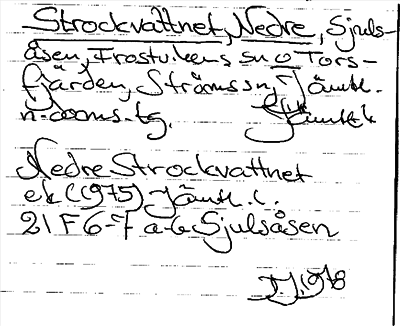 Strockvattnet, Nedre, Sjuls-
åsen, Frostvikens sn o Tors-
fjärden, Ströms sn, Jämtl.
n. doms. tg. Jämtl
Nedre Strockvattnet
ek (1975) Jämtl. l.
21F 6-7 a-b Sjulsåsen
J.J. 1978